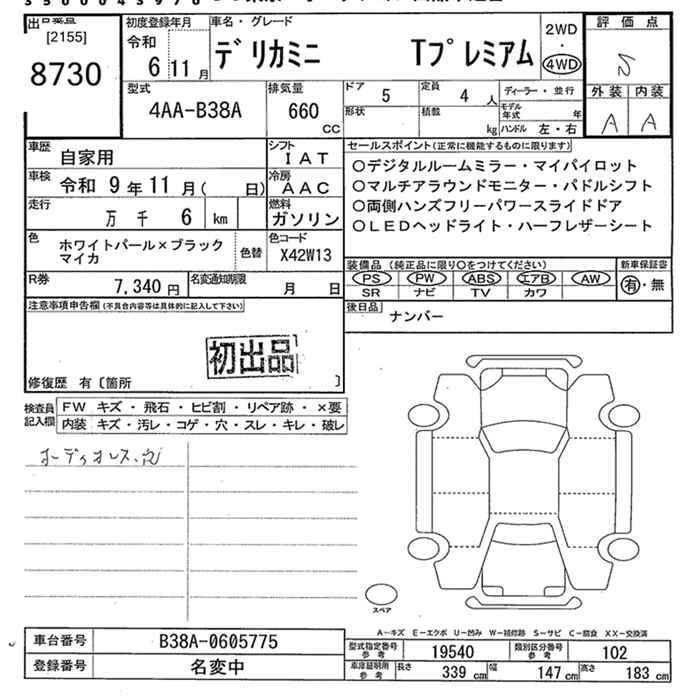 [2155]
8730
初度登録年月
令和
6 11 月
車名・グレード
デリカミニ Tプレミアム
2WD
・
4WD
評価点
S
外装 内装
A A
型式
4AA-B38A
排気量
660
CC
ドア
5
定員
4 人
ディーラー・並行
形状
積載
kg
モデル年式 年
ハンドル 左・右
車歴
自家用
シフト
IAT
車検
令和 9 年 11 月( 日)
冷房
AAC
走行
万 千 6 km
燃料
ガソリン
色
ホワイトパール×ブラック
マイカ
色替
色コード
X42W13
R券
7,340 円
名変通知期限
月 日
セールスポイント(正常に機能するものに限ります)
○デジタルルームミラー・マイパイロット
○マルチアラウンドモニター・パドルシフト
○両側ハンズフリーパワースライドドア
○LEDヘッドライト・ハーフレザーシート
装備品(純正品に限り○をつけてください)
PS PW ABS エアB AW
SR ナビ TV カワ
新車保証書
有・無
後日品
ナンバー
注意事項申告欄(不具合内容等は具体的に記入して下さい)
初出品
修復歴 有〔箇所 〕
検査員
記入欄
FW キズ・飛石・ヒビ割・リペア跡・×要
内装 キズ・汚レ・コゲ・穴・スレ・キレ・破レ
オーディオレス、穴
スペア
A-キズ E-エクボ U-凹み W-補修跡 S-サビ C-腐食 XX-交換済
車台番号
B38A-0605775
登録番号
名変中
型式指定番号
参考
19540
類別区分番号
参考
102
車庫証明用
参考
長さ 339 cm 幅 147 cm 高さ 183 cm